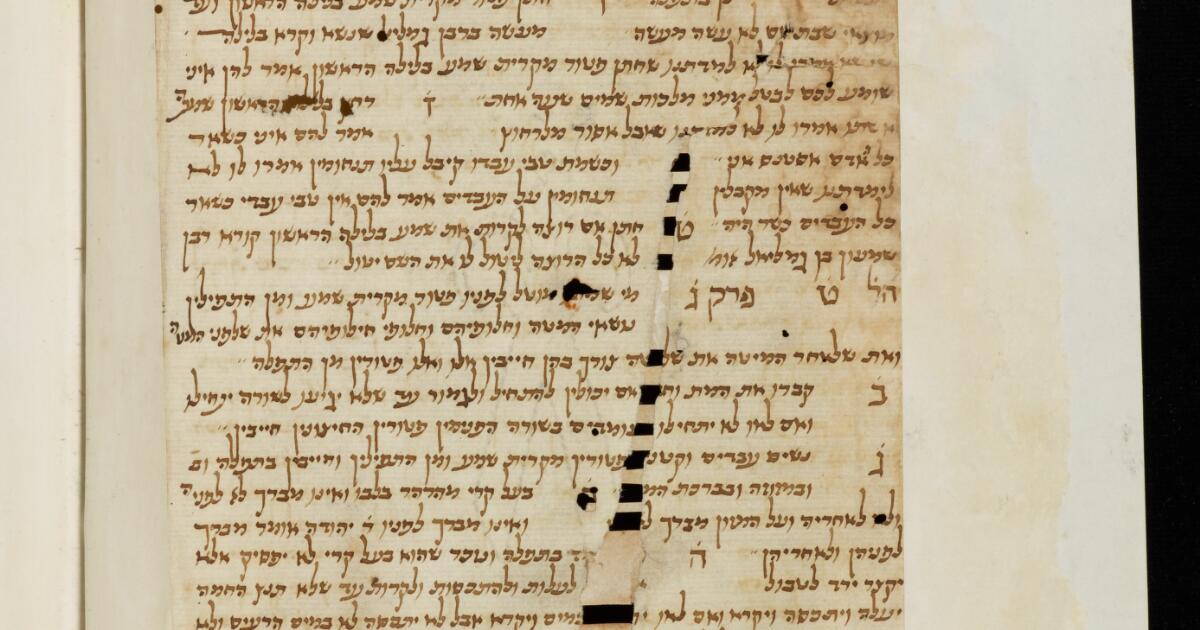 חתן פטור מקרית שמע בלילה הראשון ועד
מוצאי שבת אם לא עשה מעשה מעשה ברבן גמליאל שנשא וקרא בלילה
לא למדתנו שחתן פטור מקרית שמע בלילה הראשון אמר להן איני
שומע לכם לבטל ממני מלכות שמים שעה אחת ו רחץ בלילה הראשון שמתה
אשתו אמרו לו לא למדתנו שאבל אסור מלרחוץ אמר להם איני כשאר
כל אדם אסטנס אני וכשמת טבי עבדו קיבל עליו תנחומין אמרו לו לא
לימדתנו שאין מקבלין תנחומין על העבדים אמר להם אין טבי עבדי כשאר
כל העבדים כשר היה חתן אם רוצה לקרות את שמע בלילה הראשון קורא רבן
שמעון בן גמליאל אומ' לא כל הרוצה ליטול לו את השם יטול
פרק ג מי שמתו מוטל לפניו פטור מקרית שמע ומן התפילין
נושאי המיטה וחלופיהם וחלופי חילופיהם את שלפני המטה
ואת שלאחר המיטה את שלמטה צורך בהן חייבין אלו ואלו פטורין מן התפלה
ב קברו את המת וחזרו אם יכולין להתחיל ולגמור עד שלא יגיעו לשורה יתחילו
ואם לאו לא יתחילו העומדים בשורה הפנימין פטורין החיצונין חייבין
ג נשים עבדים וקטנים פטורין מקרית שמע ומן התפילין וחייבין בתפלה
ובמזוזה ובברכת המזון בעל קרי מהרהר בלבו ואינו מברך לא לפניה
ולא לאחריה ועל המזון מברך לאחריו ואינו מברך לפניו ר יהודה אומר מברך
לפניהן ולאחריהן ה היה עומד בתפלה ונזכר שהוא בעל קרי לא יפסיק אלא
יקצר ירד לטבול לעלות ולהתכסות ולקרות עד שלא תנץ החמה
יעלה ויתכסה ויקרא ואם לאו יתכסה במים ויקרא אבל לא יתכסה לא במים הרעים ולא